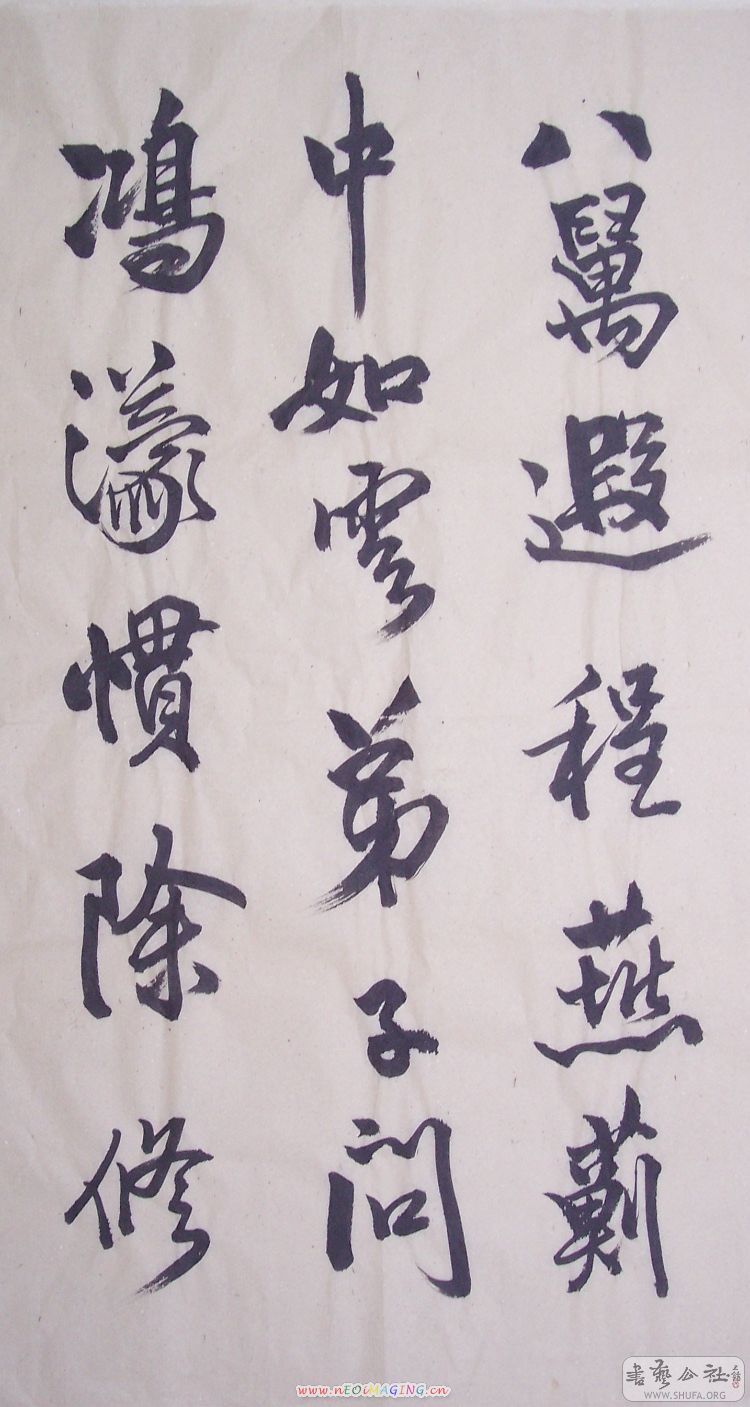 八萬遐程燕薊
中如雲弟子問
鴻濛慣除修
www.nEOiMAGING.cn
書藝公社
WWW.SHUFA.ORG